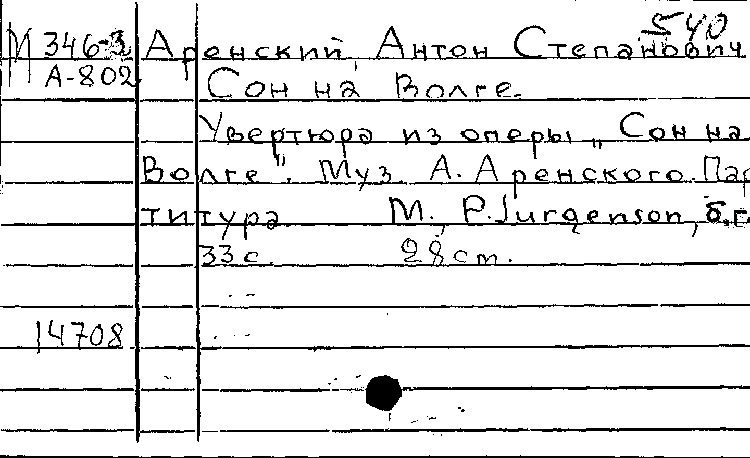 540
М 346-3 Аренский, Антон Степанович
А-802 Сон на Волге.
Увертюра из оперы „Сон на
Волге". Муз. А. Аренского. Пар
титура М., P. Jurgenson, б.г.
33 с. 28 cm.
14708